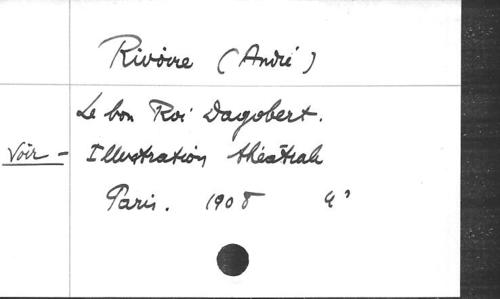 Rivoire (André)
Le bon Roi Dagobert.
Voir - Illustration théâtrale
Paris. 1908 4°